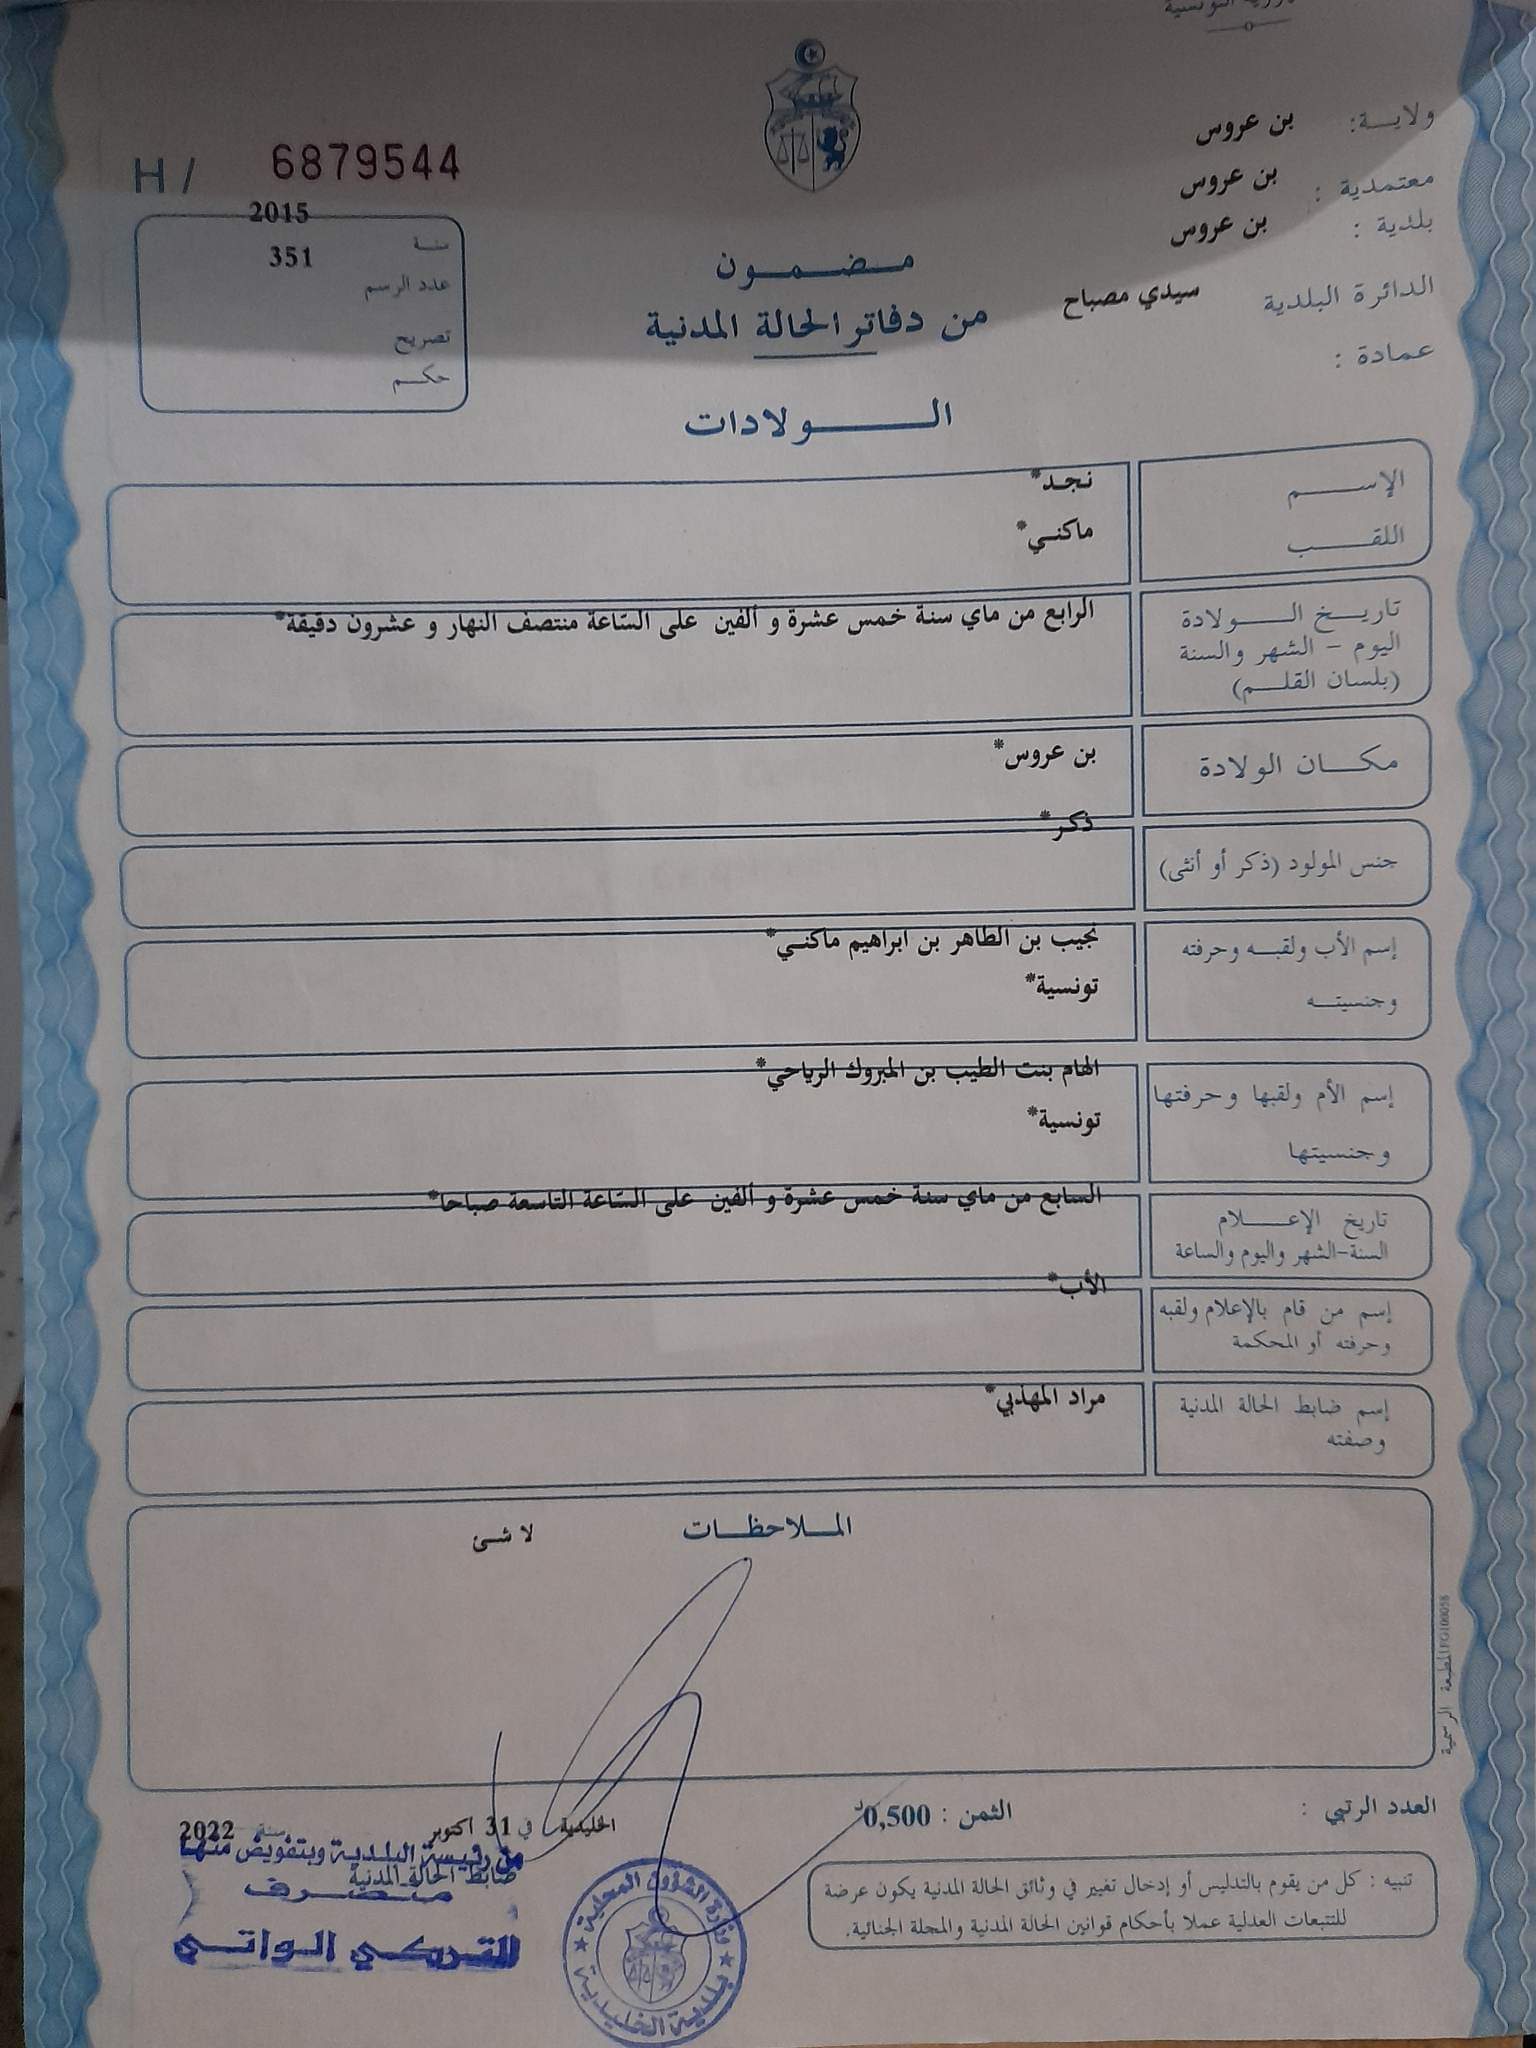 ولاية: بن عروس
معتمدية : بن عروس
بلدية : بن عروس
الدائرة البلدية سيدي مصباح
عمادة :
H / 6879544
2015
سنة
351
عدد الرسم
تصريح
حكم
مضمون
من دفاتر الحالة المدنية
الولادات
الإسم نجد*
اللقب ماكني*
تاريخ الولادة الرابع من ماي سنة خمس عشرة و ألفين على السّاعة منتصف النهار و عشرون دقيقة*
اليوم - الشهر والسنة
(بلسان القلم)
مكان الولادة بن عروس*
ذكر*
جنس المولود (ذكر أو أنثى)
إسم الأب ولقبه وحرفته نجيب بن الطاهر بن ابراهيم ماكني*
وجنسيته تونسية*
إسم الأم ولقبها وحرفتها الهام بنت الطيب بن المبروك الرياحي*
وجنسيتها تونسية*
السابع من ماي سنة خمس عشرة و ألفين على السّاعة التاسعة صباحا*
تاريخ الإعلام
السنة-الشهر واليوم والساعة
الأب*
إسم من قام بالإعلام ولقبه
وحرفته أو المحكمة
إسم ضابط الحالة المدنية مراد المهذبي*
وصفته
الملاحظات لا شئ
المطبعة الرسمية
العدد الرتبي :
الثمن : 0,500د
الخليدية في 31 اكتوبر سنة 2022
من رئيسة البلدية وبتفويض منها
ضابط الحالة المدنية
متصرف
التركي الواتي
وزارة الشؤون المحلية
بلدية الخليدية
تنبيه : كل من يقوم بالتدليس أو إدخال تغيير في وثائق الحالة المدنية يكون عرضة
للتتبعات العدلية عملا بأحكام قوانين الحالة المدنية والمجلة الجنائية.